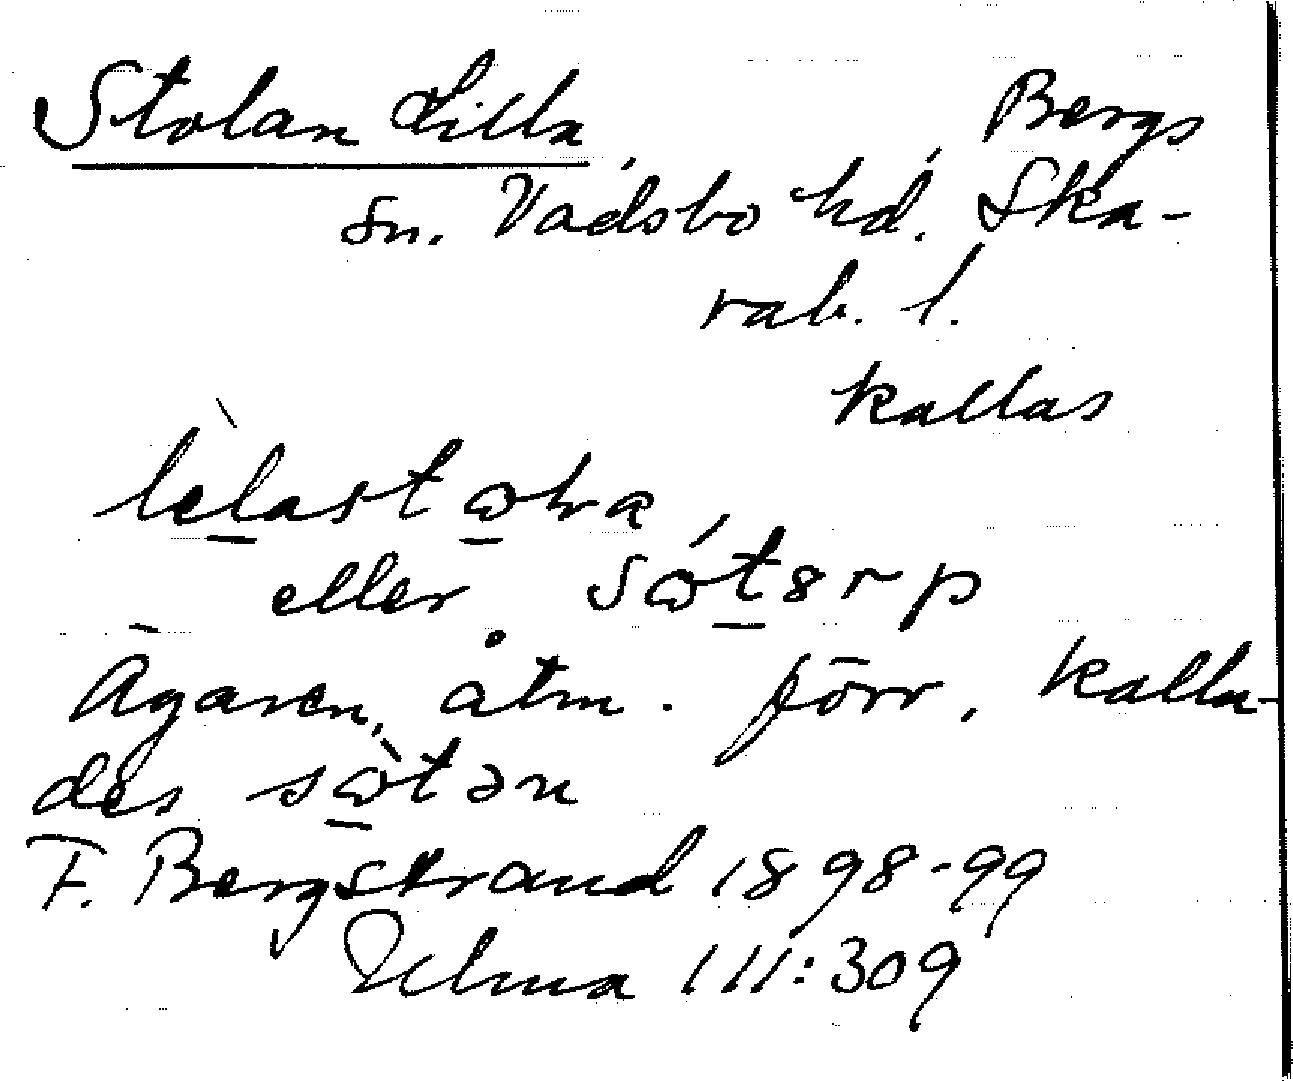 Stolan Lilla, Bergs
sn. Vadsbo hd. Ska-
rab. l.
kallas
lèlastωlra
eller sώtɜrp
Ägaren, åtm. förr, kalla-
des sὼtən
F. Bergstrand 1898-99
Ulma 111:309